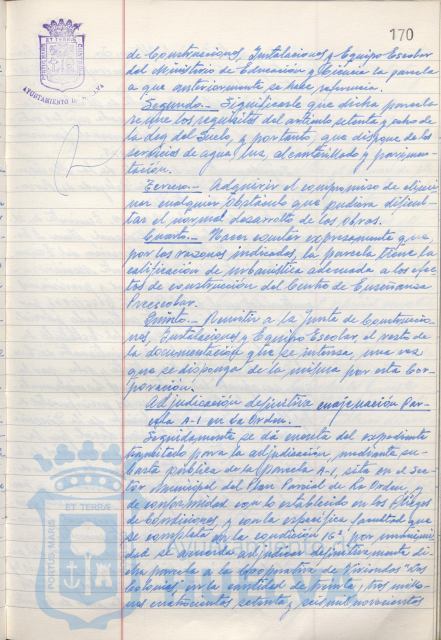 170
PORTUS MARIS ET TERRÆ CUSTODIA
AYUNTAMIENTO DE HUELVA
de Construcciones, Instalaciones y Equipo Escolar
del Ministerio de Educación y Ciencia la parcela
a que anteriormente se hace referencia.
Segundo.- Significarle que dicha parcela
reune los requisitos del artículo setenta y ocho de
la Ley del Suelo, y por tanto, que dispone de los
servicios de agua, luz, alcantarillado y pavimen-
tación.
Tercero.- Adquirir el compromiso de elimi-
nar cualquier obstáculo que pudiera dificul-
tar el normal desarrollo de las obras.
Cuarto.- Hacer constar expresamente que
por las razones indicadas, la parcela tiene la
calificación de urbanística adecuada a los efec-
tos de construcción del Centro de Enseñanza
Preescolar.
Quinto.- Remitir a la Junta de Construccio-
nes, Instalaciones y Equipo Escolar, el resto de
la documentación que se interesa, una vez
que se disponga de la misma por esta Cor-
poración.
Adjudicación definitiva enajenación Par-
cela A-1 en La Orden.
Seguidamente se dá cuenta del expediente
tramitado para la adjudicación, mediante su-
basta pública de la parcela A-1, sita en el Sec-
tor Municipal del Plan Parcial de La Orden, y
de conformidad con lo establecido en los Pliegos
de Condiciones, y con la específica facultad que
se contempla en la condición 16ª, por unanimi-
dad se acuerda adjudicar definitivamente di-
cha parcela a la Cooperativa de Viviendas "Las
Colonias" en la cantidad de treinta y tres millo-
nes cuatrocientas setenta y seis mil novecientas
PORTUS MARIS ET TERRÆ